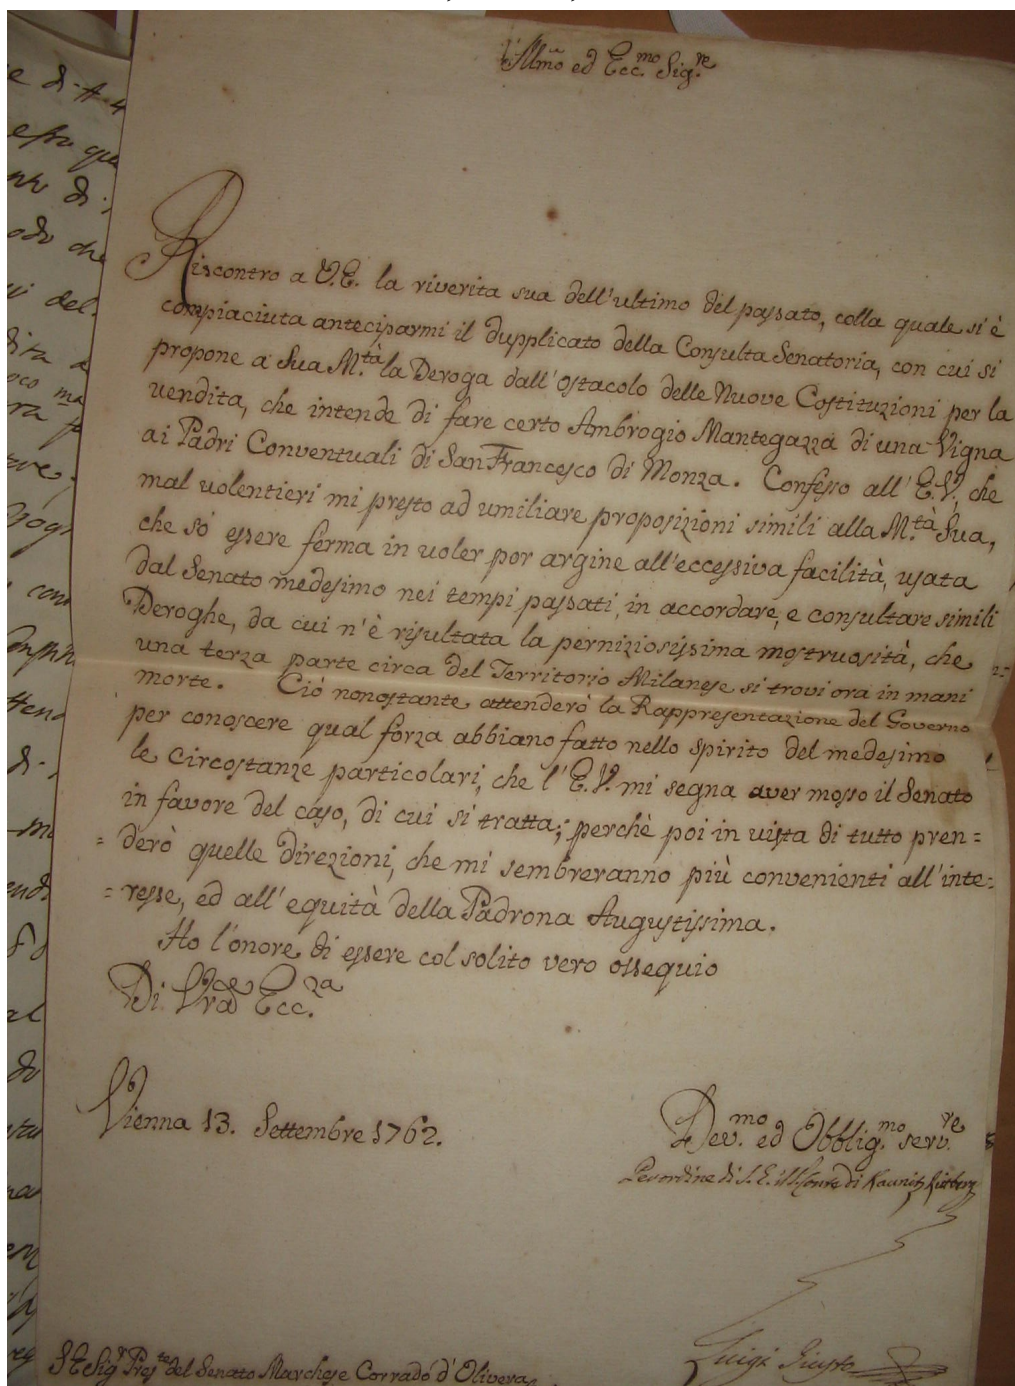 Ill.mo ed Ecc.mo Sig.re
Riscontro a V.E. la riverita sua dell'ultimo del passato, colla quale si è
compiaciuta anteciparmi il dupplicato della Consulta Senatoria, con cui si
propone a Sua M.tà la Deroga dall'ostacolo delle Nuove Costituzioni per la
vendita, che intende di fare certo Ambrogio Mantegazza di una Vigna
ai Padri Conventuali di San Francesco di Monza. Confesso all'E.V., che
mal volentieri mi presto ad umiliare proposizioni simili alla M.tà Sua,
che só essere ferma in voler por argine all'eccessiva facilità, usata
dal Senato medesimo nei tempi passati, in accordare, e consultare simili
Deroghe, da cui n'è risultata la perniziosissima mostruosità, che
una terza parte circa del Territorio Milanese si trovi ora in mani
morte. Ció nonostante attenderò la Rappresentazione del Governo
per conoscere qual forza abbiano fatto nello spirito del medesimo
le Circostanze particolari, che l'E.V. mi segna aver mosso il Senato
in favore del caso, di cui si tratta; perchè poi in vista di tutto pren=
=derò quelle direzioni, che mi sembreranno più convenienti all'inte=
=resse, ed all'equità della Padrona Augustissima.
Ho l'onore di essere col solito vero ossequio
Di Vra Ecc.za
Vienna 13. Settembre 1762.
Dev.mo ed Obblig.mo serv.re
Per ordine di S.E. il Sr Conte di Kaunitz Rittberg
Luigi Giusto
S E Sigr Preste del Senato Marchese Corrado d'Olivera
e di
que
di
che
del